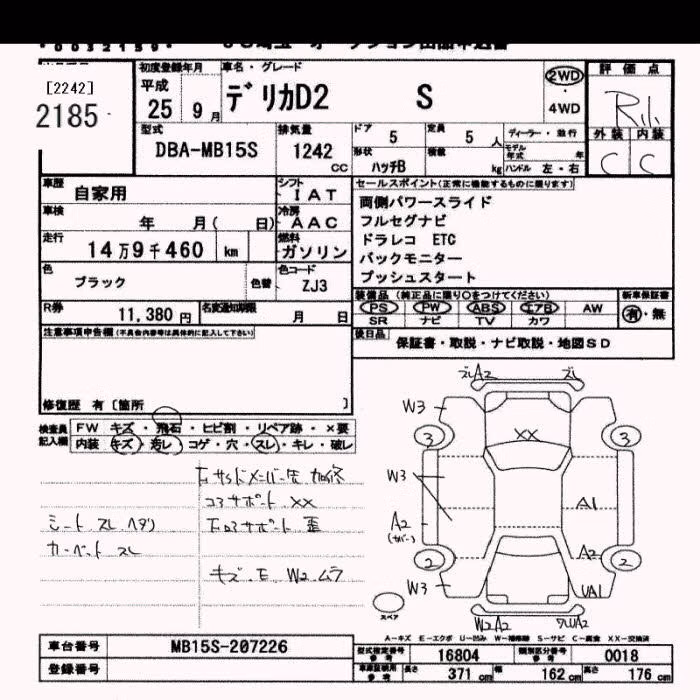 [2242]
2185
初度登録年月
平成
25 9 月
車名・グレード
デリカD2 S
2WD
・
4WD
評価点
R
外装 内装
C C
型式
DBA-MB15S
排気量
1242
CC
ドア 5
定員 5 人
形状 ハッチB
積載 kg
ディーラー・並行
モデル年式 年
ハンドル 左・右
車歴
自家用
シフト
I A T
車検
年 月( 日)
冷房
A A C
走行
14万9千460 km
燃料
ガソリン
色
ブラック
色替
色コード
ZJ3
R券
11,380 円
名変通知期限
月 日
セールスポイント(正常に機能するものに限ります)
両側パワースライド
フルセグナビ
ドラレコ ETC
バックモニター
プッシュスタート
装備品 (純正品に限り○をつけてください)
新車保証書
PS PW ABS エアB AW
SR ナビ TV カワ
有・無
後日品
保証書・取説・ナビ取説・地図SD
注意事項申告欄(不具合内容等は具体的に記入して下さい)
修復歴 有 [箇所 ]
検査員
記入欄
FW キズ・飛石・ヒビ割・リペア跡・×要
内装 キズ・汚レ・コゲ・穴・スレ・キレ・破レ
コアサポート XX
シート スレ ヘタリ
カーペット スレ
キズ・E W2ムラ
ズレA2 ズレ
W3
3 3
XX
W3
A1
A2
A2
2 2
W3
UA1
W2A2
スペア
A-キズ E-エクボ U-凹み W-補修跡 S-サビ C-腐食 XX-交換済
車台番号
MB15S-207226
登録番号
型式指定番号
参考
16804
類別区分番号
参考
0018
車庫証明用
参考
長さ 371 cm
幅 162 cm
高さ 176 cm